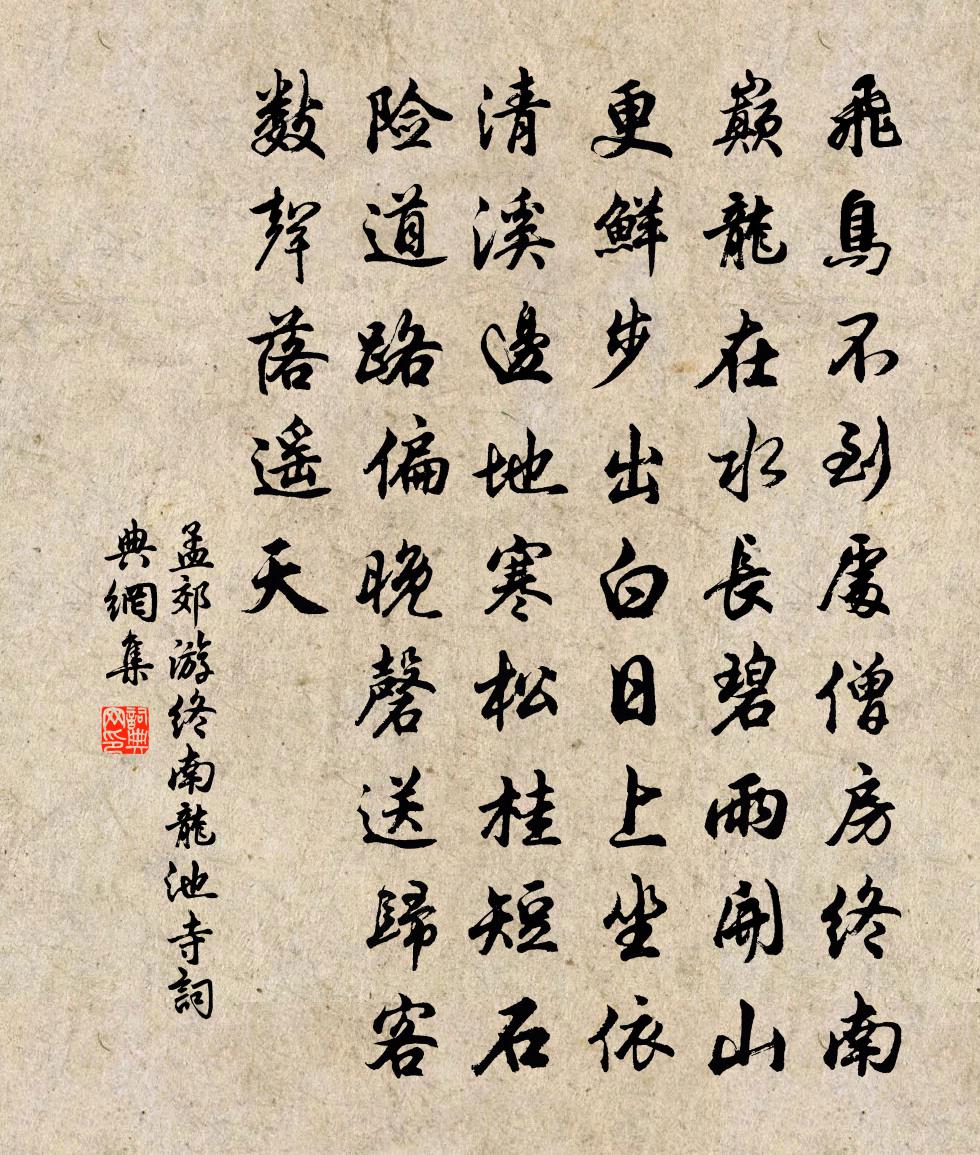 飛鳥不到處僧房終南
巔龍在水長碧雨開山
更鮮步出白日上坐依
清溪邊地寒松桂短石
险道路偏晚磬送歸客
數聲落遥天
孟郊游終南龍池寺詞
典網集
詞典
网印